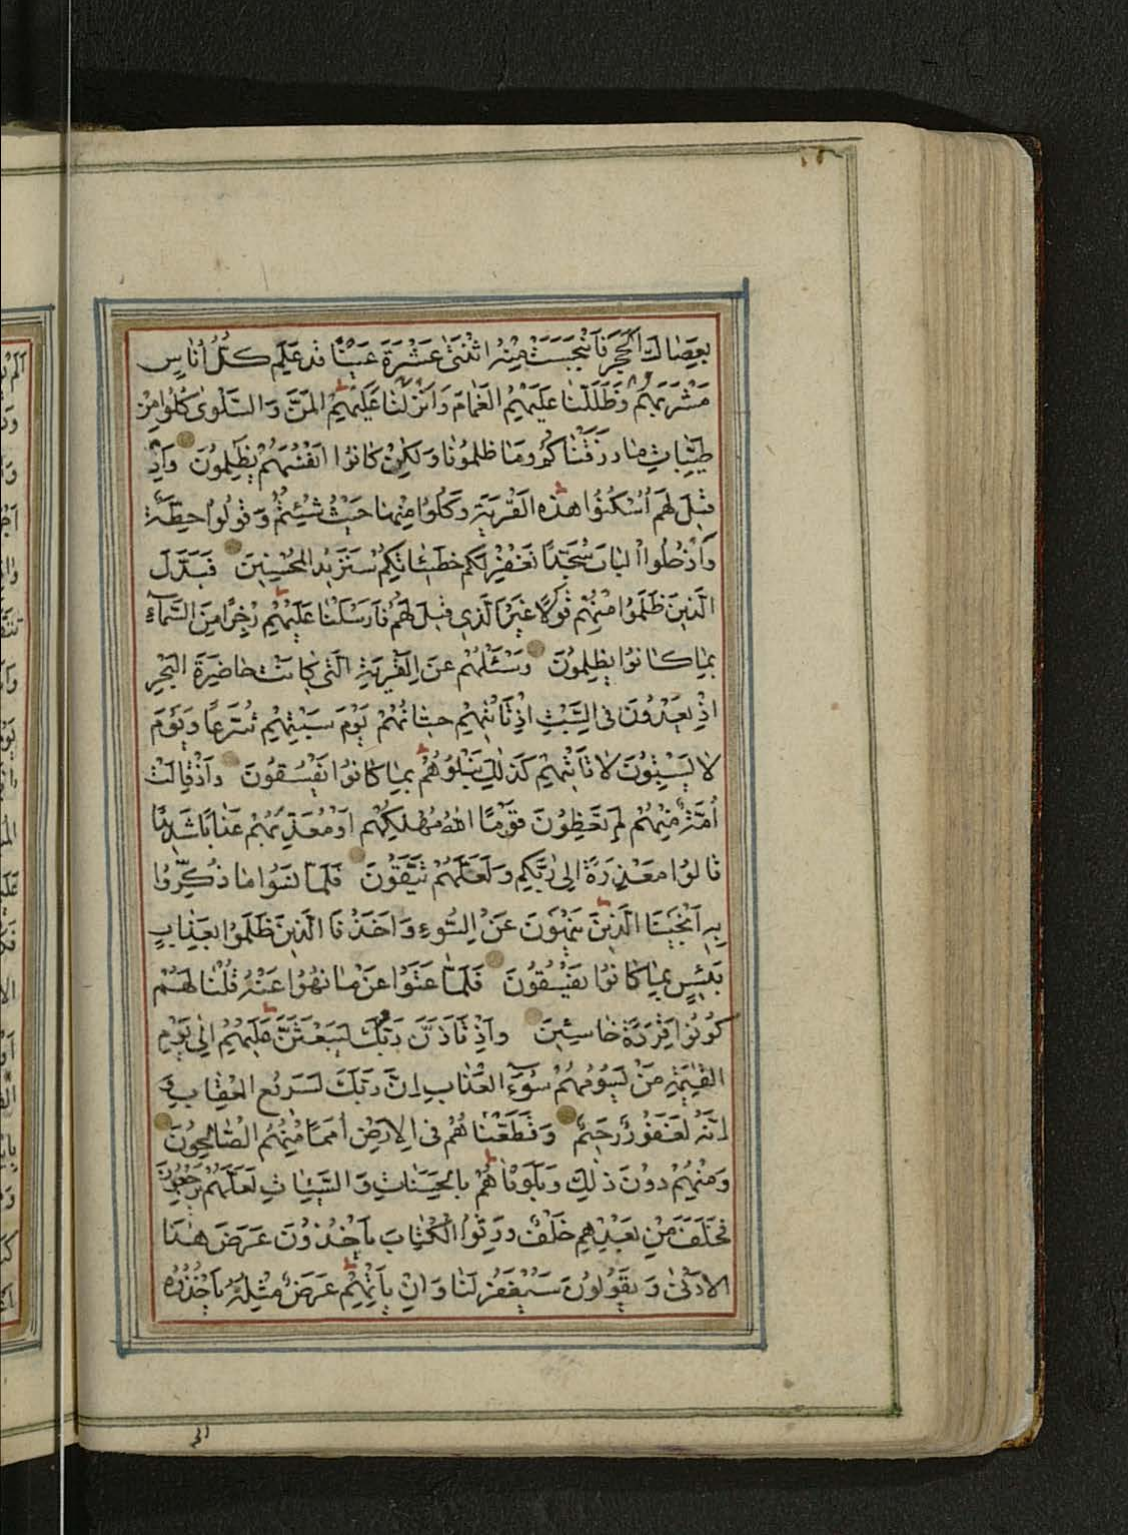 بِعَصَاكَ الْحَجَرَ فَانْبَجَسَتْ مِنْهُ اثْنَتَىٰ عَشْرَةَ عَيْنًا قَدْ عَلِمَ كُلُّ أُنَاسٍ
مَشْرَبَهُمْ وَظَلَّلْنَا عَلَيْهِمُ الْغَمَامَ وَأَنْزَلْنَا عَلَيْهِمُ الْمَنَّ وَالسَّلْوٰى كُلُوا مِنْ
طَيِّبَاتِ مَا رَزَقْنَاكُمْ وَمَا ظَلَمُونَا وَلٰكِنْ كَانُوا أَنْفُسَهُمْ يَظْلِمُونَ وَإِذْ
قِيلَ لَهُمُ اسْكُنُوا هٰذِهِ الْقَرْيَةَ وَكُلُوا مِنْهَا حَيْثُ شِئْتُمْ وَقُولُوا حِطَّةٌ
وَادْخُلُوا الْبَابَ سُجَّدًا نَغْفِرْ لَكُمْ خَطِيئَاتِكُمْ سَنَزِيدُ الْمُحْسِنِينَ فَبَدَّلَ
الَّذِينَ ظَلَمُوا مِنْهُمْ قَوْلًا غَيْرَ الَّذِي قِيلَ لَهُمْ فَأَرْسَلْنَا عَلَيْهِمْ رِجْزًا مِنَ السَّمَآءِ
بِمَا كَانُوا يَظْلِمُونَ وَسْئَلْهُمْ عَنِ الْقَرْيَةِ الَّتِي كَانَتْ حَاضِرَةَ الْبَحْرِ
إِذْ يَعْدُونَ فِي السَّبْتِ إِذْ تَأْتِيهِمْ حِيتَانُهُمْ يَوْمَ سَبْتِهِمْ شُرَّعًا وَيَوْمَ
لَا يَسْبِتُونَ لَا تَأْتِيهِمْ كَذٰلِكَ نَبْلُوهُمْ بِمَا كَانُوا يَفْسُقُونَ وَإِذْ قَالَتْ
أُمَّةٌ مِنْهُمْ لِمَ تَعِظُونَ قَوْمًا اللّٰهُ مُهْلِكُهُمْ أَوْ مُعَذِّبُهُمْ عَذَابًا شَدِيدًا
قَالُوا مَعْذِرَةً إِلٰى رَبِّكُمْ وَلَعَلَّهُمْ يَتَّقُونَ فَلَمَّا نَسُوا مَا ذُكِّرُوا
بِهِ أَنْجَيْنَا الَّذِينَ يَنْهَوْنَ عَنِ السُّوءِ وَأَخَذْنَا الَّذِينَ ظَلَمُوا بِعَذَابٍ
بَئِيسٍ بِمَا كَانُوا يَفْسُقُونَ فَلَمَّا عَتَوْا عَنْ مَا نُهُوا عَنْهُ قُلْنَا لَهُمْ
كُونُوا قِرَدَةً خَاسِئِينَ وَإِذْ تَأَذَّنَ رَبُّكَ لَيَبْعَثَنَّ عَلَيْهِمْ إِلٰى يَوْمِ
الْقِيٰمَةِ مَنْ يَسُومُهُمْ سُوٓءَ الْعَذَابِ إِنَّ رَبَّكَ لَسَرِيعُ الْعِقَابِ وَ
إِنَّهُ لَغَفُورٌ رَحِيمٌ وَقَطَّعْنَاهُمْ فِي الْأَرْضِ أُمَمًا مِنْهُمُ الصَّالِحُونَ
وَمِنْهُمْ دُونَ ذٰلِكَ وَبَلَوْنَاهُمْ بِالْحَسَنَاتِ وَالسَّيِّئَاتِ لَعَلَّهُمْ يَرْجِعُونَ
فَخَلَفَ مِنْ بَعْدِهِمْ خَلْفٌ وَرِثُوا الْكِتَابَ يَأْخُذُونَ عَرَضَ هٰذَا
الْأَدْنٰى وَيَقُولُونَ سَيُغْفَرُ لَنَا وَإِنْ يَأْتِهِمْ عَرَضٌ مِثْلُهُ يَأْخُذُوهُ